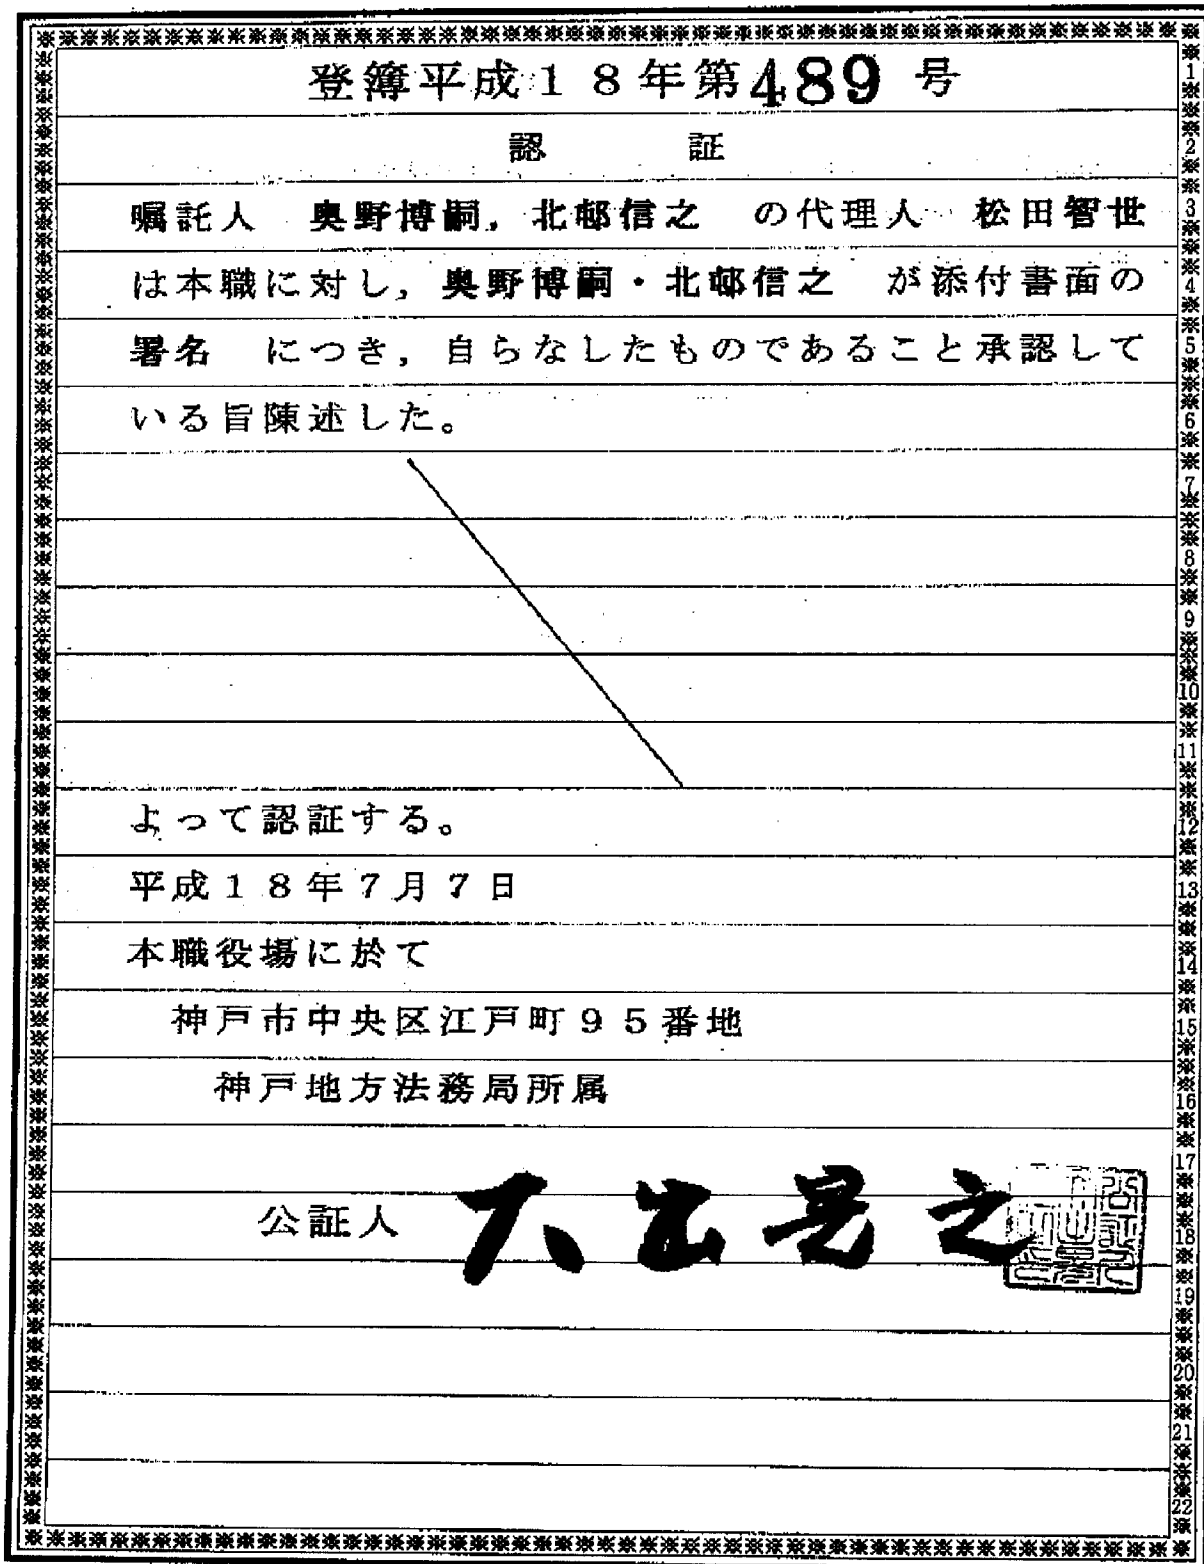 登簿平成18年第489号
認 証
嘱託人 奥野博嗣,北邨信之 の代理人 松田智世
は本職に対し,奥野博嗣・北邨信之 が添付書面の
署名 につき,自らなしたものであること承認して
いる旨陳述した。
よって認証する。
平成18年7月7日
本職役場に於て
神戸市中央区江戸町95番地
神戸地方法務局所属
公証人
1
2
3
4
5
6
7
8
9
10
11
12
13
14
15
16
17
18
19
20
21
22